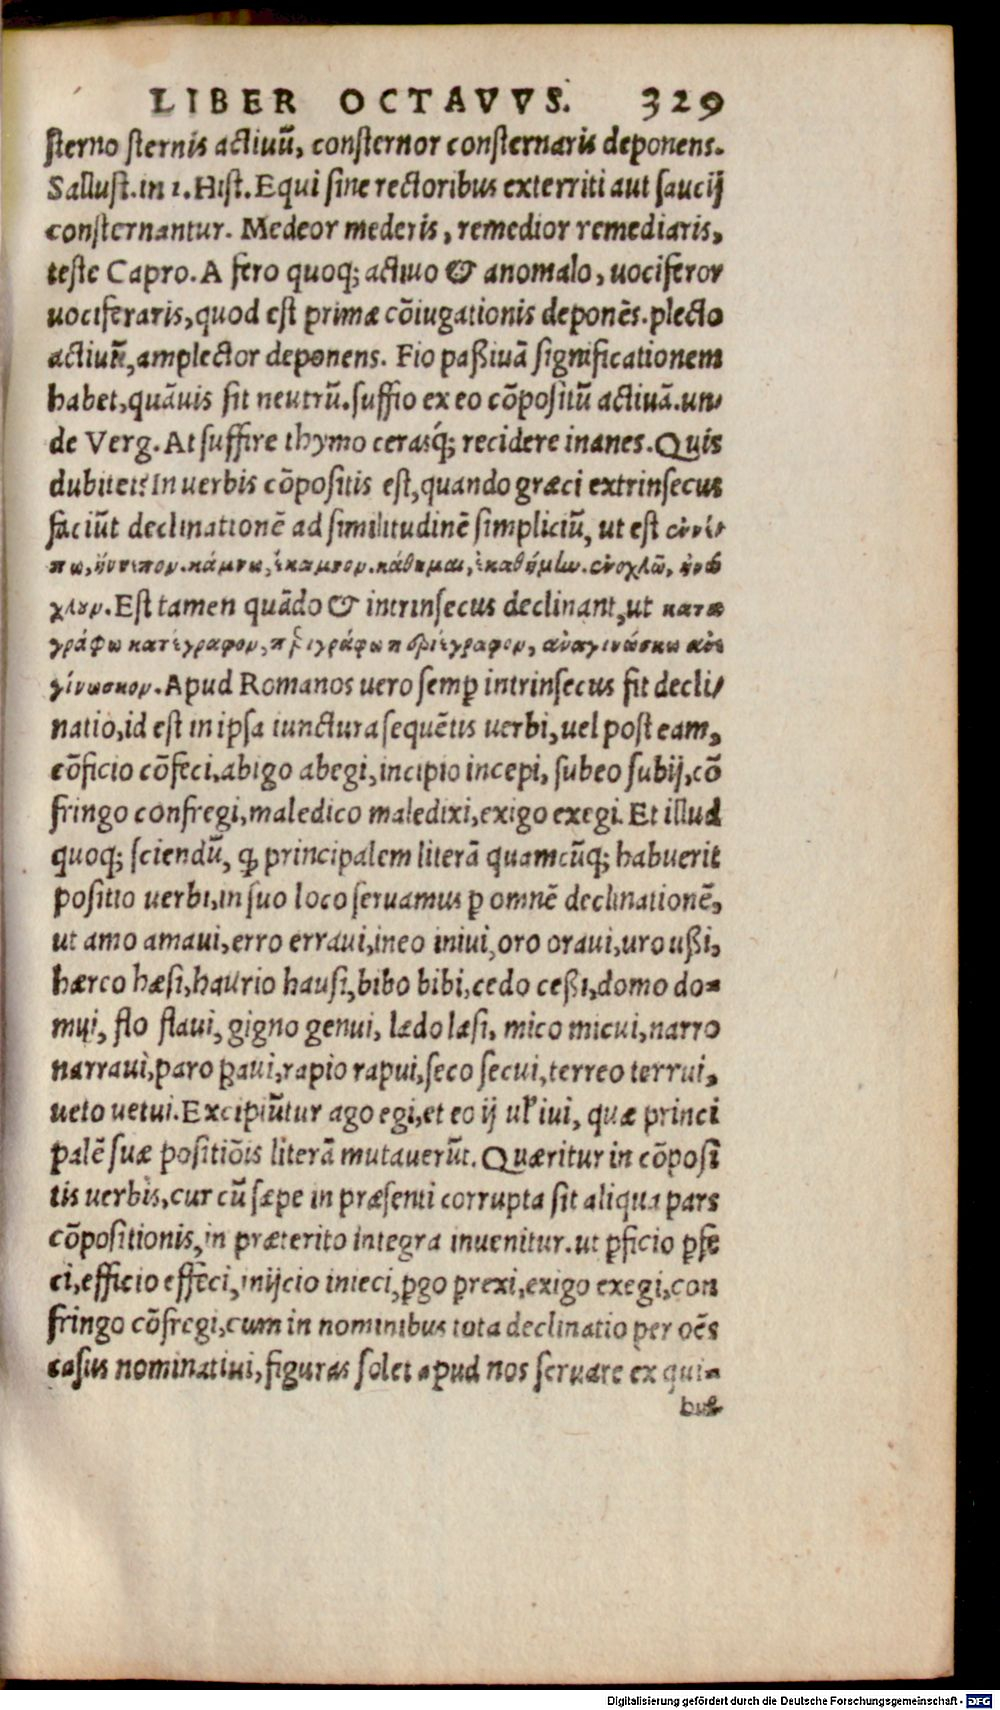 LIBER OCTAVVS. 329
sterno sternis actiuũ, consternor consternaris deponens.
Sallust. in 1. Hist. Equi sine rectoribus exterriti aut saucij
consternantur. Medeor mederis, remedior remediaris,
teste Capro. A fero quoq; actiuo & anomalo, uociferor
uociferaris, quod est primæ cõiugationis deponẽs. plecto
actiuũ, amplector deponens. Fio paßiuã significationem
habet, quãuis sit neutrũ. suffio ex eo cõpositũ actiuã. un-
de Verg. At suffire thymo cerasq́; recidere inanes. Quis
dubitet? In uerbis cõpositis est, quando græci extrinsecus
faciũt declinationẽ ad similitudinẽ simpliciũ, ut est ἐννέ-
πω, ἤννεπον. κάμνω, ἔκαμνον. κάθημαι, ἐκαθήμην. ἐνοχλῶ, ἠνώ
χλουν. Est tamen quãdo & intrinsecus declinant, ut κατα
γράφω κατέγραφον, περιγράφω περιέγραφον, ἀναγινώσκω ἀνε
γίνωσκον. Apud Romanos uero semꝑ intrinsecus fit decli-
natio, id est in ipsa iunctura sequẽtis uerbi, uel post eam,
cõficio cõfeci, abigo abegi, incipio incepi, subeo subij, cõ
fringo confregi, maledico maledixi, exigo exegi. Et illud
quoq; sciendũ, ꝙ principalem literã quamcũq; habuerit
positio uerbi, in suo loco seruamus ꝑ omnẽ declinationẽ,
ut amo amaui, erro erraui, ineo iniui, oro oraui, uro ußi,
hærco hæsi, haurio hausi, bibo bibi, cedo ceßi, domo do-
mui, flo flaui, gigno genui, lædo læsi, mico micui, narro
narraui, paro ꝑaui, rapio rapui, seco secui, terreo terrui,
ueto uetui. Excipiũtur ago egi, et eo ij uł iui, quæ princi
palẽ suæ positiõis literã mutauerũt. Quæritur in cõposi
tis uerbis, cur cũ sæpe in præsenti corrupta sit aliqua pars
cõpositionis, in præterito integra inuenitur. ut ꝑficio ꝑfe
ci, efficio effeci, inijcio inieci, ꝑgo ꝑrexi, exigo exegi, con
fringo cõfregi, cum in nominibus tota declinatio per oẽs
casus nominatiui, figuras solet apud nos seruare ex qui-
bus
Digitalisierung gefördert durch die Deutsche Forschungsgemeinschaft - DFG